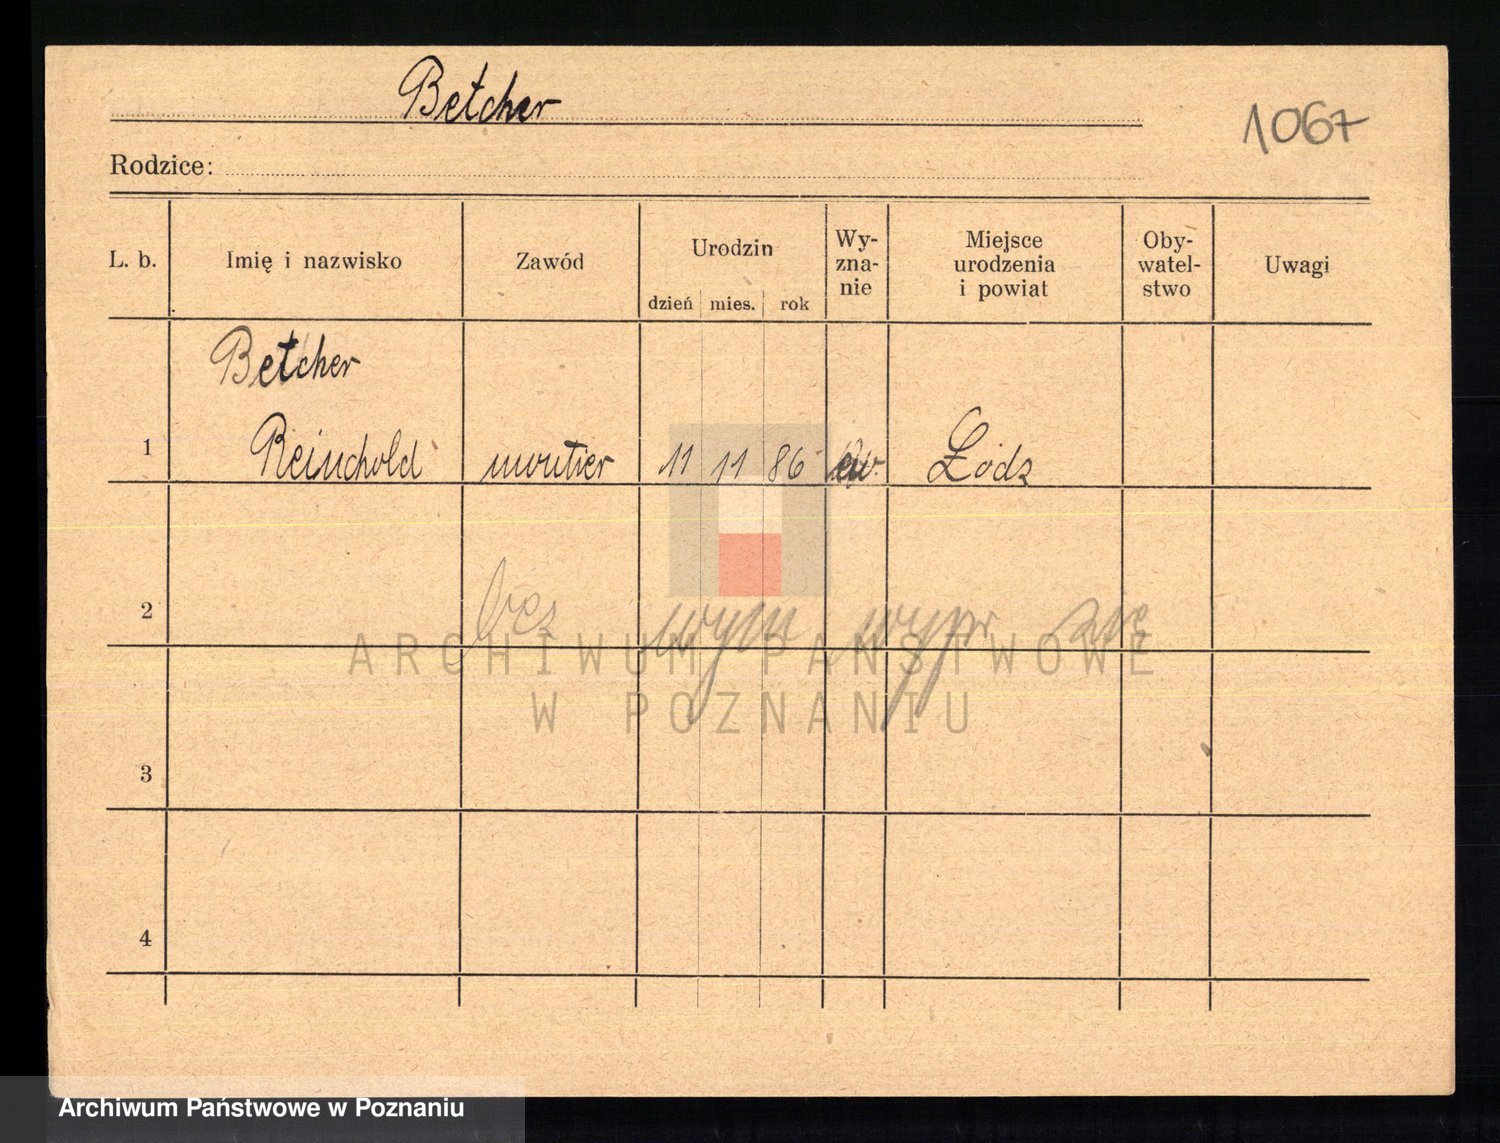 Betcher
1067
Rodzice:
L. b. Imię i nazwisko Zawód Urodzin dzień mies. rok Wy-zna-nie Miejsce urodzenia i powiat Oby-watel-stwo Uwagi
Betcher
1 Reinchold montier 11 11 86 ew. Łódz
2 bez wym wypr
3
4
ARCHIWUM PAŃSTWOWE
W POZNANIU
Archiwum Państwowe w Poznaniu